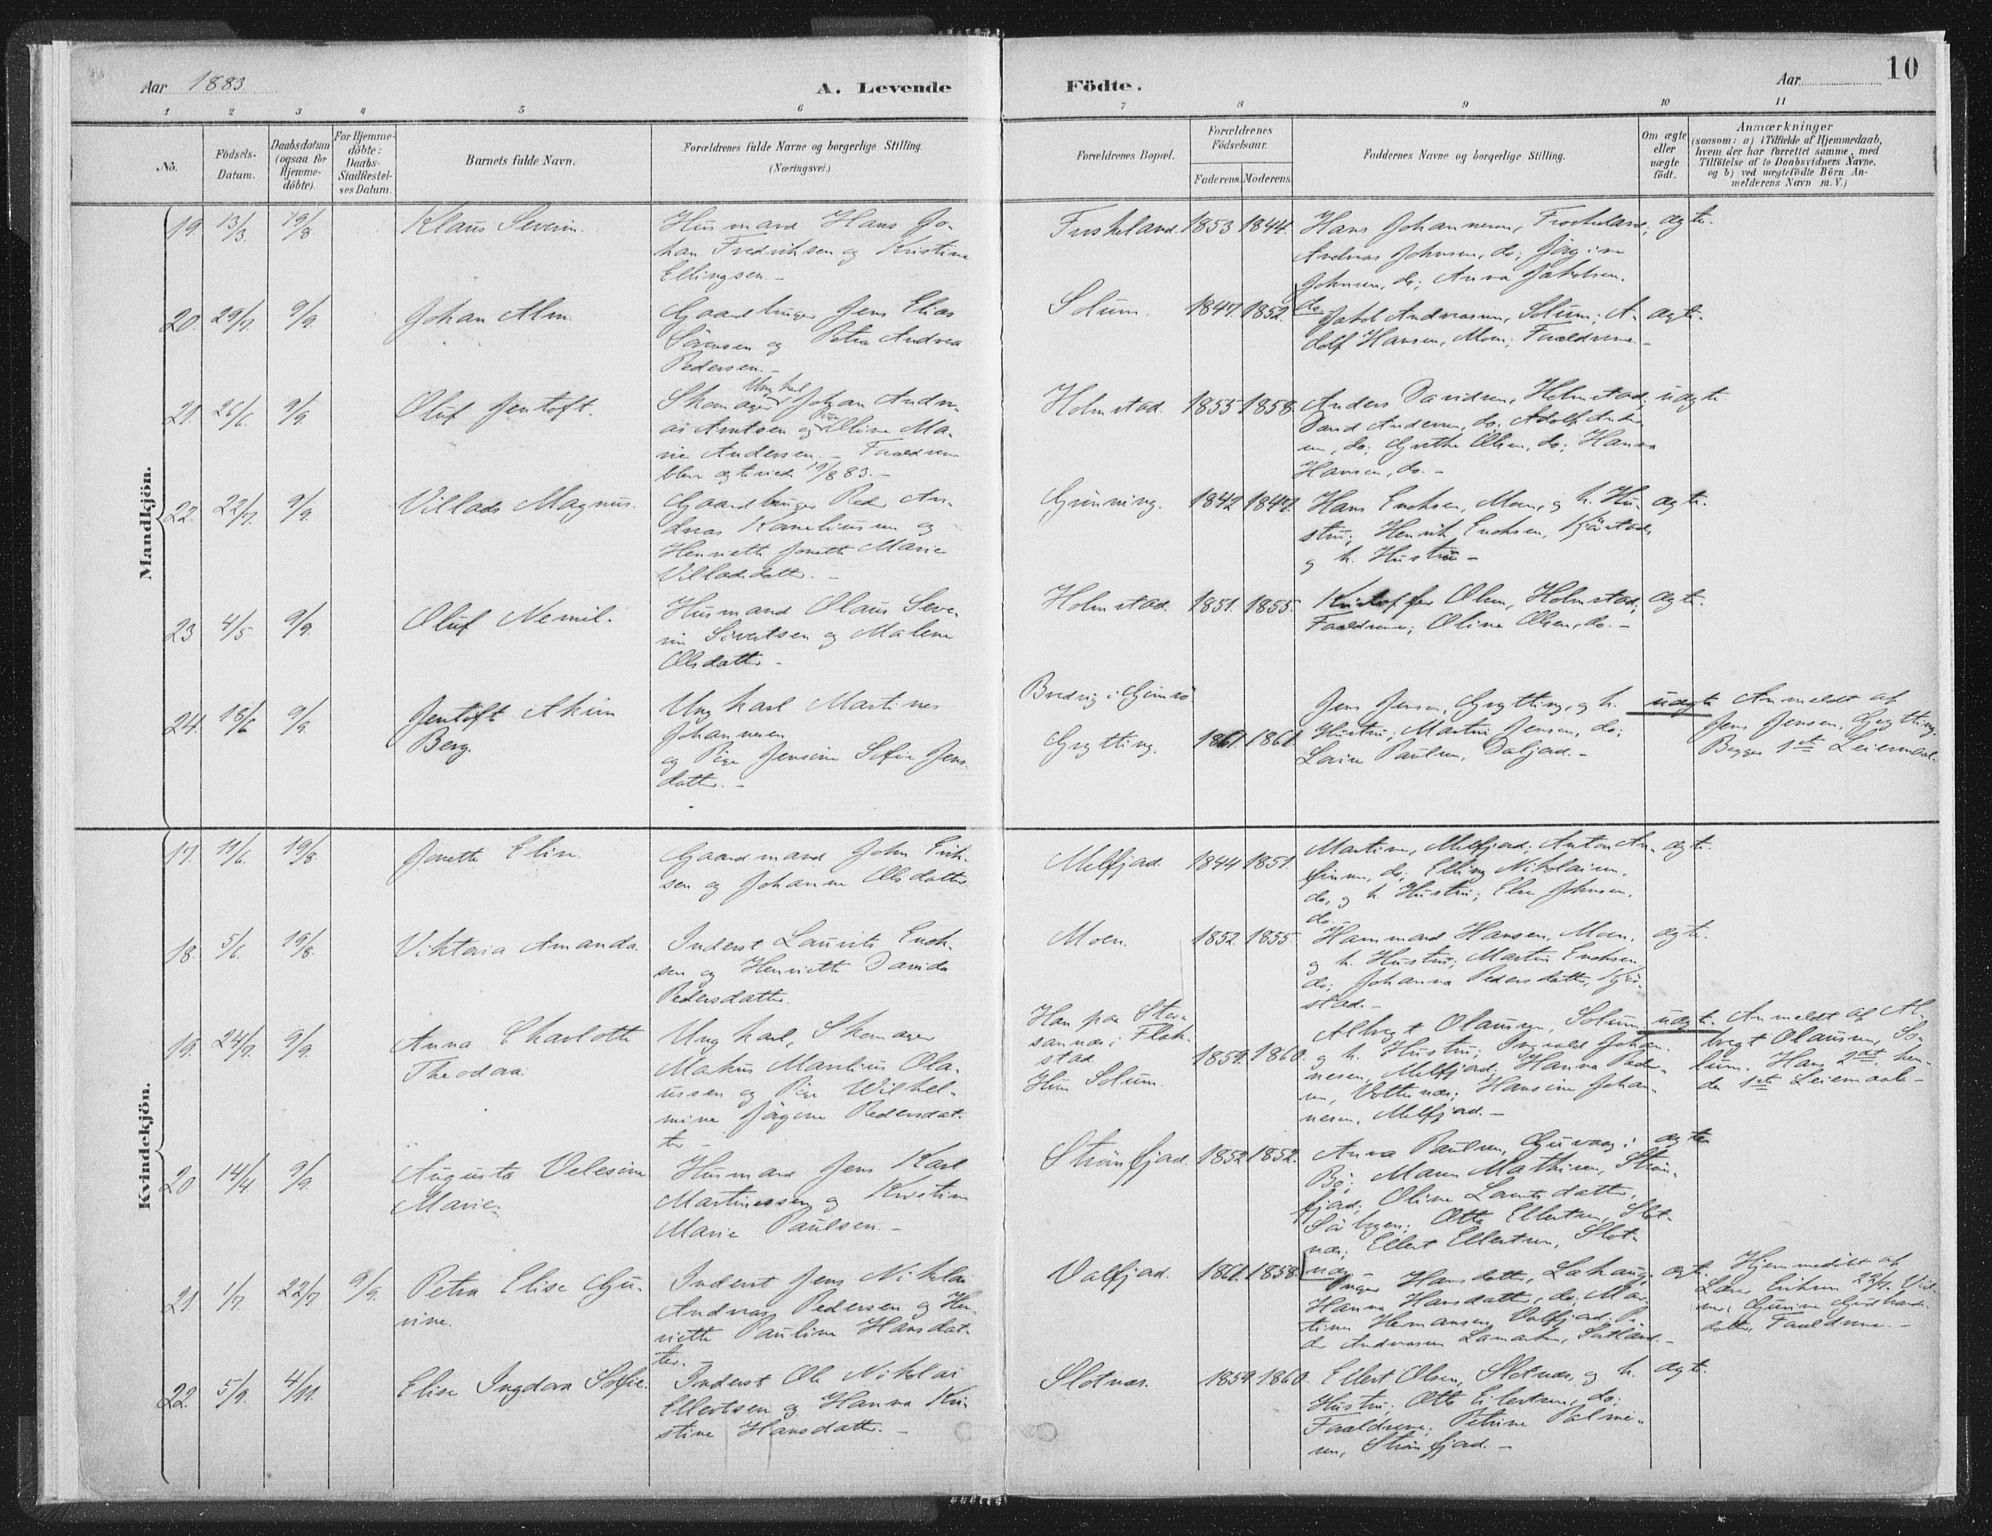 Aar 1883.
A. Levende
Födte.
Aar
10
1 2 3 4 5 6 7 8 9 10 11
No.
Födsels-
Datum.
Daabsdatum
(ogsaa for
Hjemme-
döbte).
For Hjemme-
döbte:
Daabs-
Stadfæstel-
ses Datum.
Barnets fulde Navn.
Forældrenes fulde Navne og borgerlige Stilling.
(Næringsvei.)
Forældrenes Bopæl.
Forældrenes
Födselsaar.
Faderens. Moderens.
Faddernes Navne og borgerlige Stilling.
Om ægte
eller
uægte
födt.
Anmærkninger
(saasom: a) i Tilfælde af Hjemmedaab,
hvem der har forrettet samme, med
Tilföielse af to Daabsvidners Navne,
og b) ved uægtefödte Börn An-
melderens Navn m. V.)
Mandkjön.
19. 13/3. 19/8 Klaus Severin.
Husmand Hans Jo-
han Fredriksen og Kristine
Ellingsen.-
1853 1844.
Hans Johannesen,
Andreas Johnsen, do;
Johnsen, do; Anna Jakobsen,
do
ægte.
20 29/7. 9/9. Johan Alm.
Gaardbruger Jens Elias
Sörensen og Petra Andrea
Pedersen.-
Solum. 1847. 1852.
Jakob Andreassen, Solum; A-
dolf Hansen, Moen; Forældrene-
ægte.
21. 26/6. 9/9. Oluf Jentoft.
Ungkarl
Skomager Johan Andre-
as Arntsen og Pige Oline Ma-
rie Andersen.- Forældrene
blev ægteviede 19/8 83.-
Holmstad. 1855 1858.
Anders Davidsen, Holmstad;
David Andersen, do; Adolf Ander-
sen, do; Olsen, do; Hanna
Hansen, do.-
uægte
22. 22/7. 9/9. Villads Magnus.
Gaardbruger Peder An-
dreas Korneliussen og
Henriette Jonette Marie
Villadsdatter.-
Grönning. 1842 1847.
Hans Enoksen, Moen, og h. Hu-
stru; Henrik Enoksen, Kjörstad,
og h. Hustru-
ægte.
23 4/5. 9/9. Oluf Nemil.
Husmand Olaus Seve-
rin Sivertsen og Malene
Olsdatter-
Holmstad. 1851. 1855.
Kristoffer Olsen, Holmstad;
Forældrene; Oline Olsen, do.-
ægte.
24. 18/6 9/9. Jentoft Akim
Berg.
Ungkarl Martines
Johannesen
og Pige Jensine Sofie Jens-
datter.-
Bredvig i Gimsö
Grytting. 1861. 1861
Jens Jensen, Grytting, og h.
Hustru; Martin Jensen, do;
Lovise Paulsen, Valfjord.-
uægte
Anmeldt af
Jens Jensen, Grytting.
Begges 1ste Leiermaal.
Kvindekjön.
17. 11/6. 19/8. Jonette Elise.
Gaardmand John Erik-
sen og Johanne Olsdatter
Melfjord. 1844 1851.
Martine, Melfjord; Anton An-
finsen, do; Elling Nikolaisen,
do, og h. Hustru; Elen Johnsen,
do-
ægte.
18. 5/6. 19/8. Viktoria Amanda.
Inderst Laurits Enok-
sen og Henriette Davida
Pedersdatter.
Moen. 1852. 1855.
Hammond Hansen, Moen,
og h. Hustru; Martin Enoksen,
do; Johanna Pedersdatter, Kjör-
stad.-
ægte.
19. 24/7. 9/9. Anna Charlotte
Theodora.
Ungkarl, Skomager
Markus Mauritius Ola-
ussen og Pige Wilhel-
mine Jörgine Pedersdat-
ter-
Han paa Stene-
sannæs i Flak-
stad
Hun Solum.
1859. 1860.
Albregt Olaussen, Solum,
og h. Hustru; Ingvald Johan-
nesen, Melfjord; Hanna Peder-
sen, Votnæs; Hansine Johan-
nesen, Melfjord.-
uægte.
Anmeldt af Al-
bregt Olaussen, So-
lum. Hans 2det, hen-
des 1ste Leiermaal-
20. 14/4 9/9. Augusta Velesine
Marie.
Husmand Jens Karl
Martinessen og Kristine
Marie Paulsen.-
Strömfjord. 1852 1852.
Anna Paulsen, i
Bö; Maren Mathisen, Ström-
fjord; Oline Lauritsdatter,
Otto Ellertsen, Slot-
næs; Ellert Ellertsen, Slot-
næs-
ægte
21. 1/7. 22/7 9/9. Petra Elise Gu-
rine.
Inderst Jens Nikolai
Andreas Pedersen og Hen-
riette Pauline Hansdat-
ter.-
Valfjord. 1861. 1858.
Inger Hansdatter,
Hanna Hansdatter, do; Mar-
tine Hermansen, Valfjord; Pe-
der Andreassen
ægte.
Hjemmedöbt af
22/7. Vid-
ner;
datter, Forældrene.-
22. 5/9. 4/11. Elise Ingdora Sofie.
Inderst Ole Nikolai
Ellertsen og Hanna Kri-
stine Hansdatter.-
Slotnæs. 1859 1860.
Ellert Olsen, Slotnæs, og h.
Hustru; Otto Eilertsen, do;
Forældrene; Petrine
Strömfjord.-
ægte.